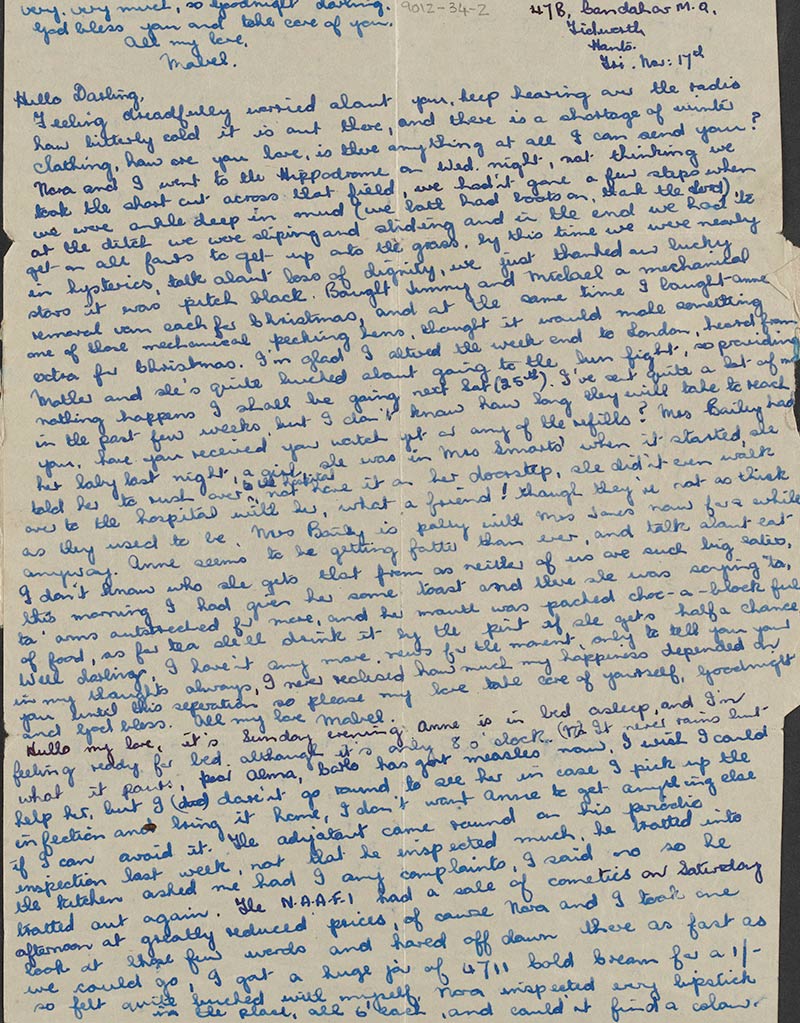 very, very much, so goodnight darling.
God bless you and take care of you.
All my love,
Mabel.
9012-34-2
47B, Candahar M.Q.
Tidworth
Hants.
Fri. Nov: 17th
Hello Darling,
Feeling dreadfully worried about you, keep hearing over the radio
how bitterly cold it is out there, and there is a shortage of winter
clothing, how are you love, is there anything at all I can send you?
Nora and I went to the Hippodrome on Wed. night, not thinking we
took the short cut across that field, we hadn't gone a few steps when
we were ankle deep in mud (we both had boots on, thank the Lord),
at the ditch we were sliping and sliding and in the end we had to
get on all fours to get up onto the grass. by this time we were nearly
in hysterics, talk about loss of dignity, we just thanked our lucky
stars it was pitch black. Bought Jimmy and Michael a mechanical
removal van each for Christmas, and at the same time I bought Anne
one of those mechanical pecking hens, thought it would make something
extra for Christmas. I'm glad I altered the week end to London, heard from
Mother and she's quite bucked about going to the bun fight, so providing
nothing happens I shall be going next Sat (25th). I've sent quite a lot of
in the past few weeks, but I don't know how long they will take to reach
you, have you received your watch yet or any of the refills? Mrs Bailey had
her baby last night, a girl, she was in Mrs Smarts' when it started, she
told her to rush over to the hospital, not have it on her doorstep, she did'nt even walk
over to the hospital with her, what a friend! though they're not as thick
as they used to be. Mrs Baily is palley with Mrs Jones now for a while
anyway. Anne seems to be getting fatter than ever, and talk about eat
I don't know who she gets that from as neither of us are such big eaters,
this morning I had given her some toast and there she was saying "ta,
ta" arms outstreched for more, and her mouth was packed choc-a-block full
of food, as for tea she'll drink it by the pint if she gets half a chance
Well darling, I have'nt any more news for the moment, only to tell you your
in my thoughts always, I never realised how much my happiness depended on
you until this seperation so please my love take care of yourself, Goodnight
and God bless. All my love Mabel.
Hullo my love, it's Sunday evening Anne is in bed asleep, and I'm
feeling ready for bed although it's only 8 o'clock. It never rains but
what it pours, poor Alma, Carlo has got measles now, I wish I could
help her, but I dare'nt go round to see her in case I pick up the
infection and bring it home, I don't want Anne to get anything else
if I can avoid it. The adjutant came round on his periodic
inspection last week, not that he inspected much, he trotted into
the kitchen asked me had I any complaints, I said no so he
trotted out again. The N.A.A.F.I had a sale of cometics on Saturday
afternoon at greatly reduced prices, of cause Nora and I took one
look at those few words and hared off down there as fast as
we could go, I got a huge jar of 4711 Cold Cream for a 1/-
so felt quite bucked with myself. Nora inspected every lipstick
in the place, all 6d each, and could'nt find a colour